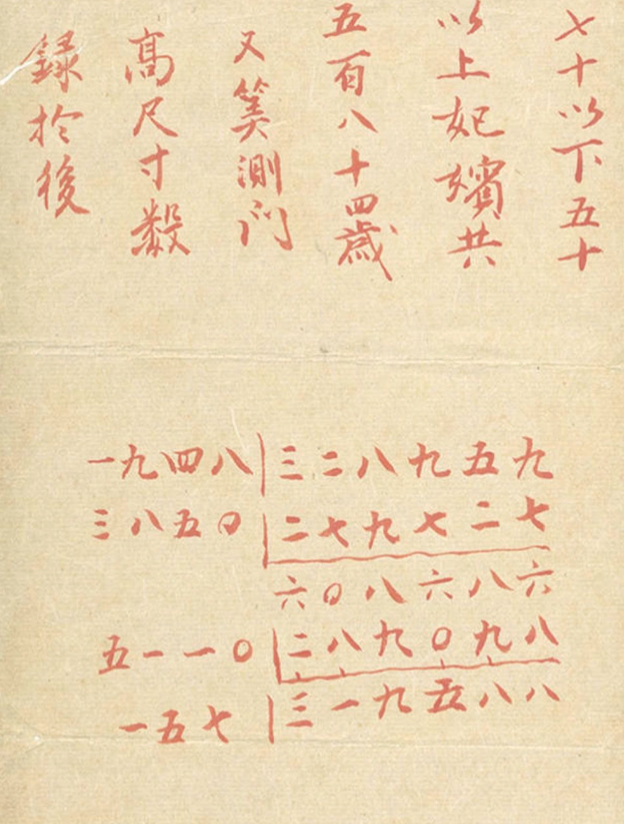 七十以下五十
以上妃嬪共
五百八十四歲
又筭測門
髙尺寸數
録扵後
一九四八 三二八九五九
三八五〇 二七九七二七
六〇八六八六
五一一〇 二八九〇九八
一五七 三一九五八八